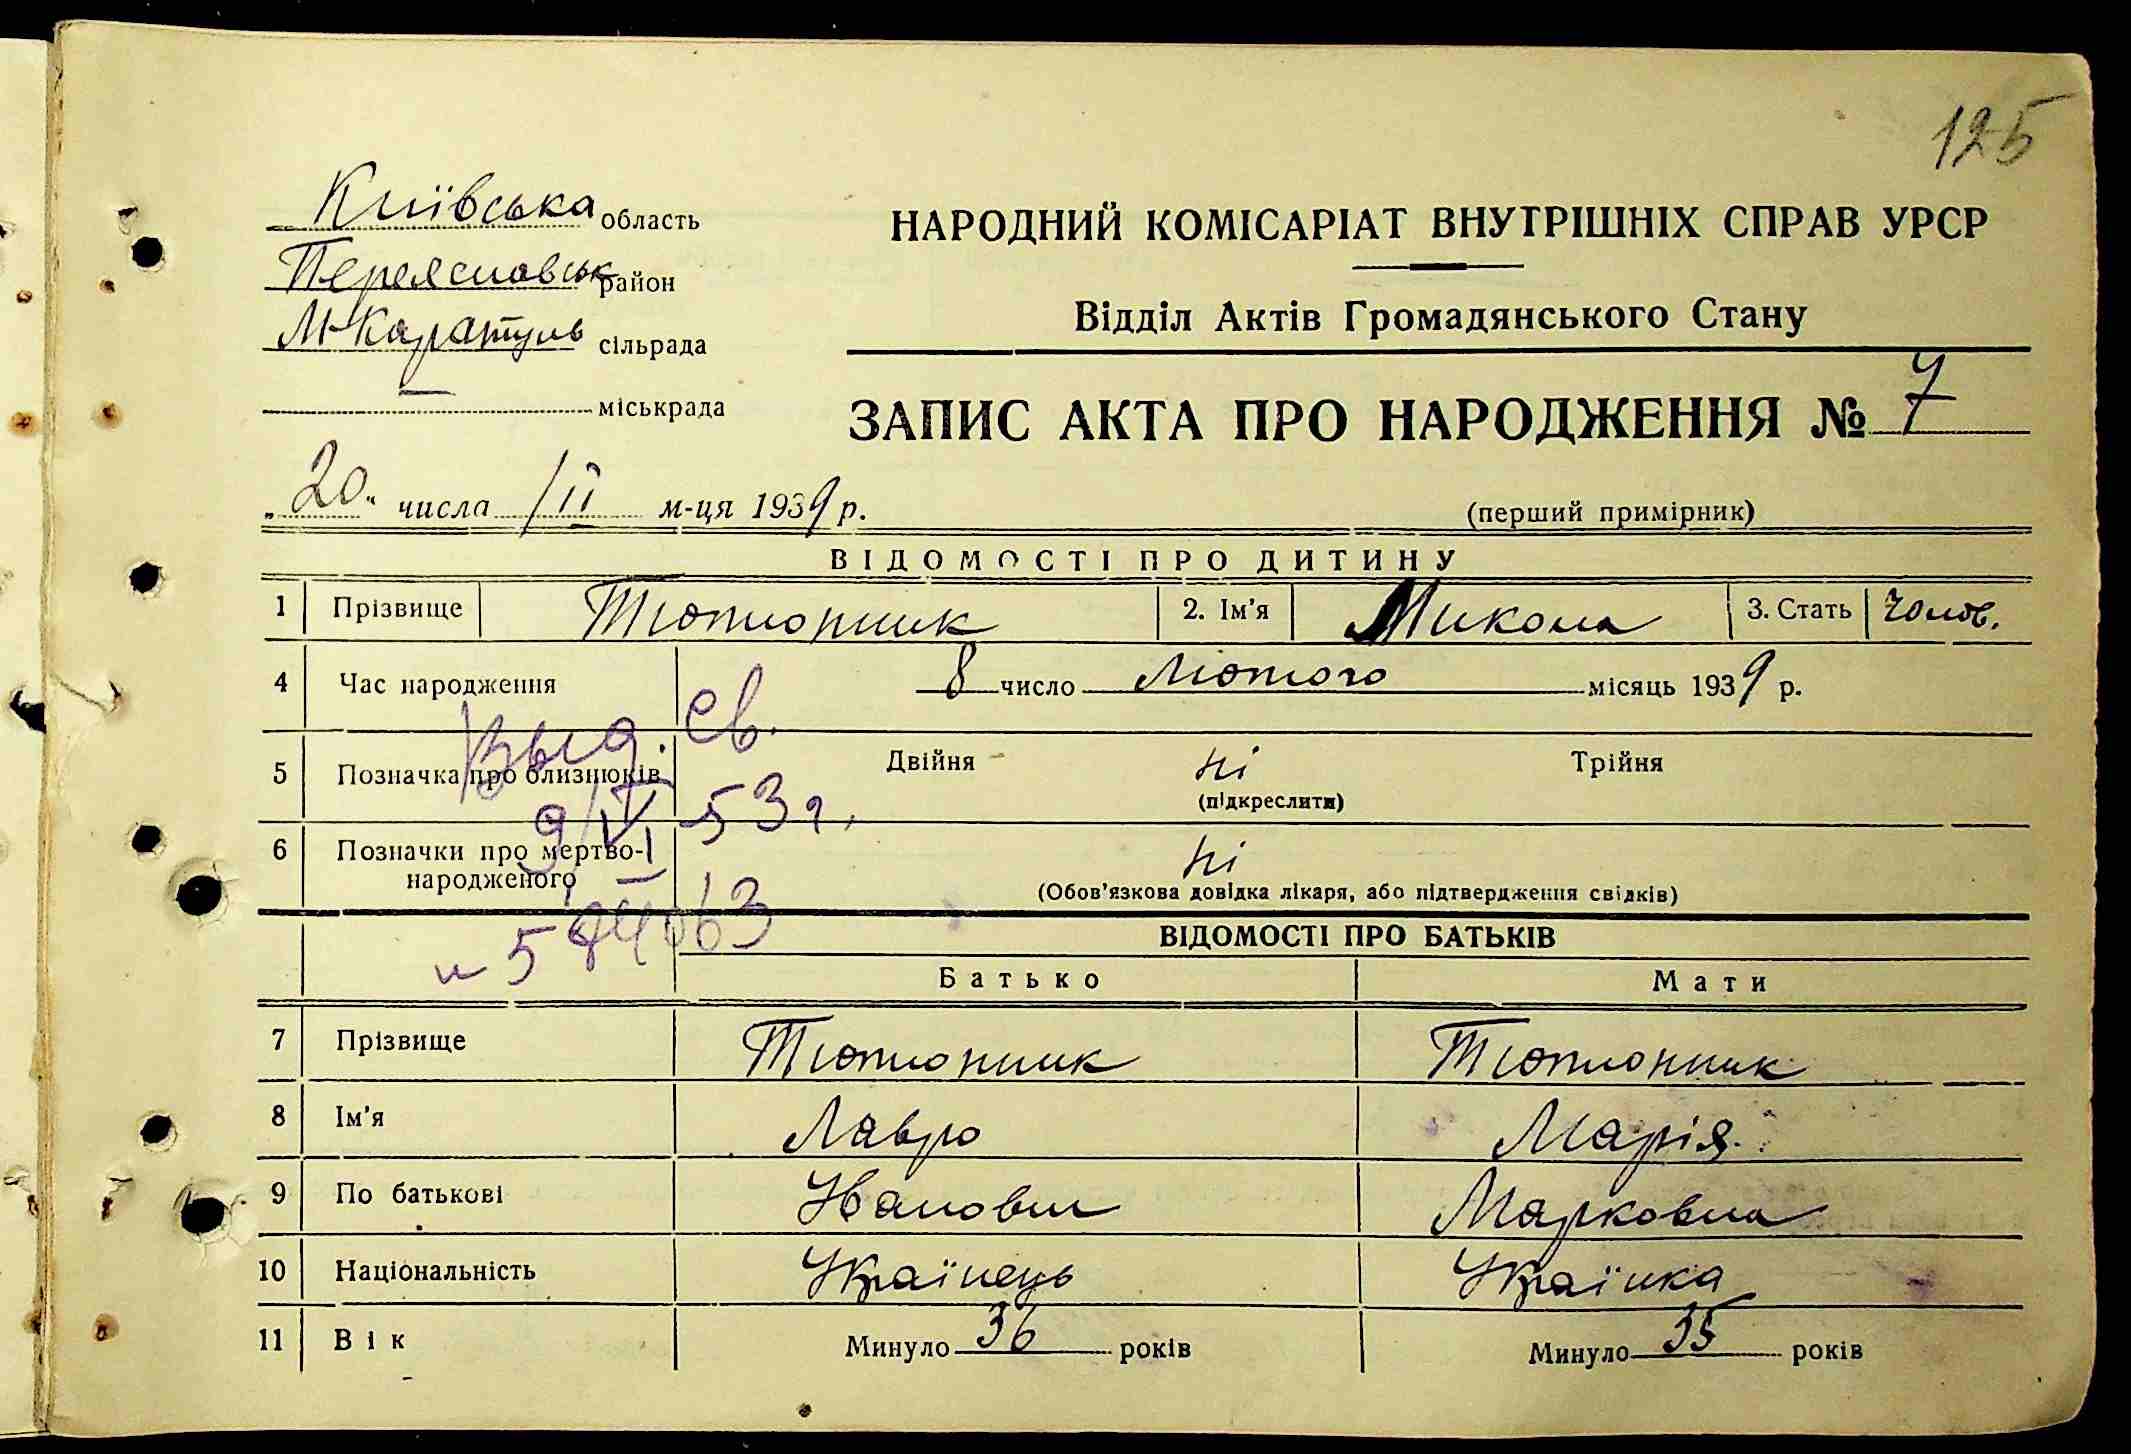 125
Київська область
Переяславськ район
М-Каратуль сільрада
— міськрада
НАРОДНИЙ КОМІСАРІАТ ВНУТРІШНІХ СПРАВ УРСР
Відділ Актів Громадянського Стану
ЗАПИС АКТА ПРО НАРОДЖЕННЯ № 7
„20“ числа /II м-ця 1939 р.
(перший примірник)
ВІДОМОСТІ ПРО ДИТИНУ
1 Прізвище Тютюнник 2. Ім'я Микола 3. Стать чолов.
4 Час народження 8 число Лютого місяць 1939 р.
Выд. св.
5 Позначка про близнюків Двійня ні Трійня
(підкреслити)
9/VI 53 г.
6 Позначки про мертво-
народженого ні
(Обов'язкова довідка лікаря, або підтвердження свідків)
ВІДОМОСТІ ПРО БАТЬКІВ
Батько Мати
7 Прізвище Тютюнник Тютюнник
8 Ім'я Лавро Марія
9 По батькові Іванович Марковна
10 Національність Українець Українка
11 Вік Минуло 36 років Минуло 35 років